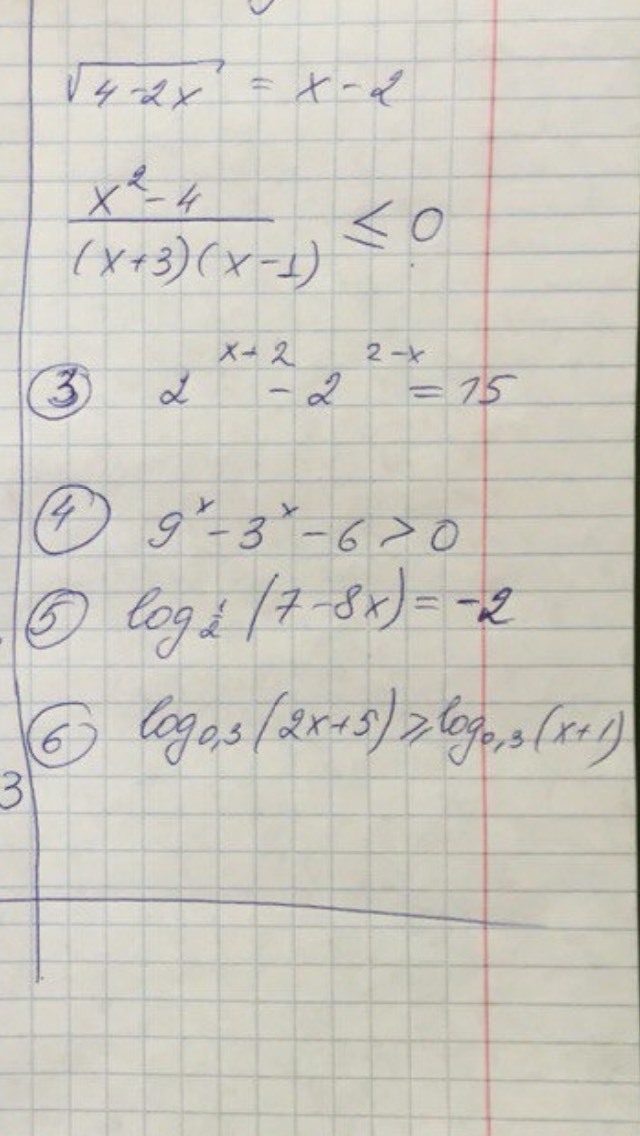 √(4-2x) = x-2
x²-4
(x+3)(x-1) ≤ 0
③ 2^(x+2) - 2^(2-x) = 15
④ 9ˣ - 3ˣ - 6 > 0
⑤ log_(1/2) (7-8x) = -2
⑥ log_0,3 (2x+5) ≥ log_0,3 (x+1)
3